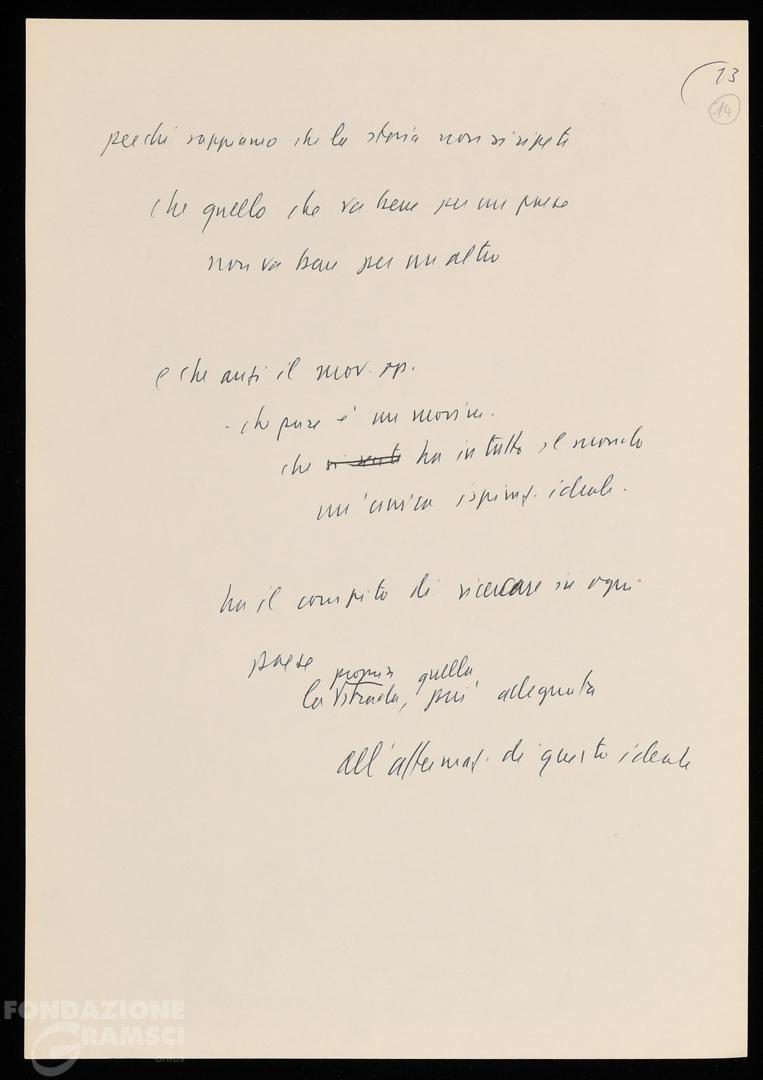 13
14
perché sappiamo che la storia non si ripete
che quello che va bene per un paese
non va bene per un altro
e che anzi il mov. op.
- che pure è un movim.
che ha in tutto il mondo
un'unica ispiraz. ideale.
ha il compito di ricercare in ogni
paese
propria quella
la strada, più adeguata
all'affermaz. di questo ideale
FONDAZIONE
GRAMSCI
onlus